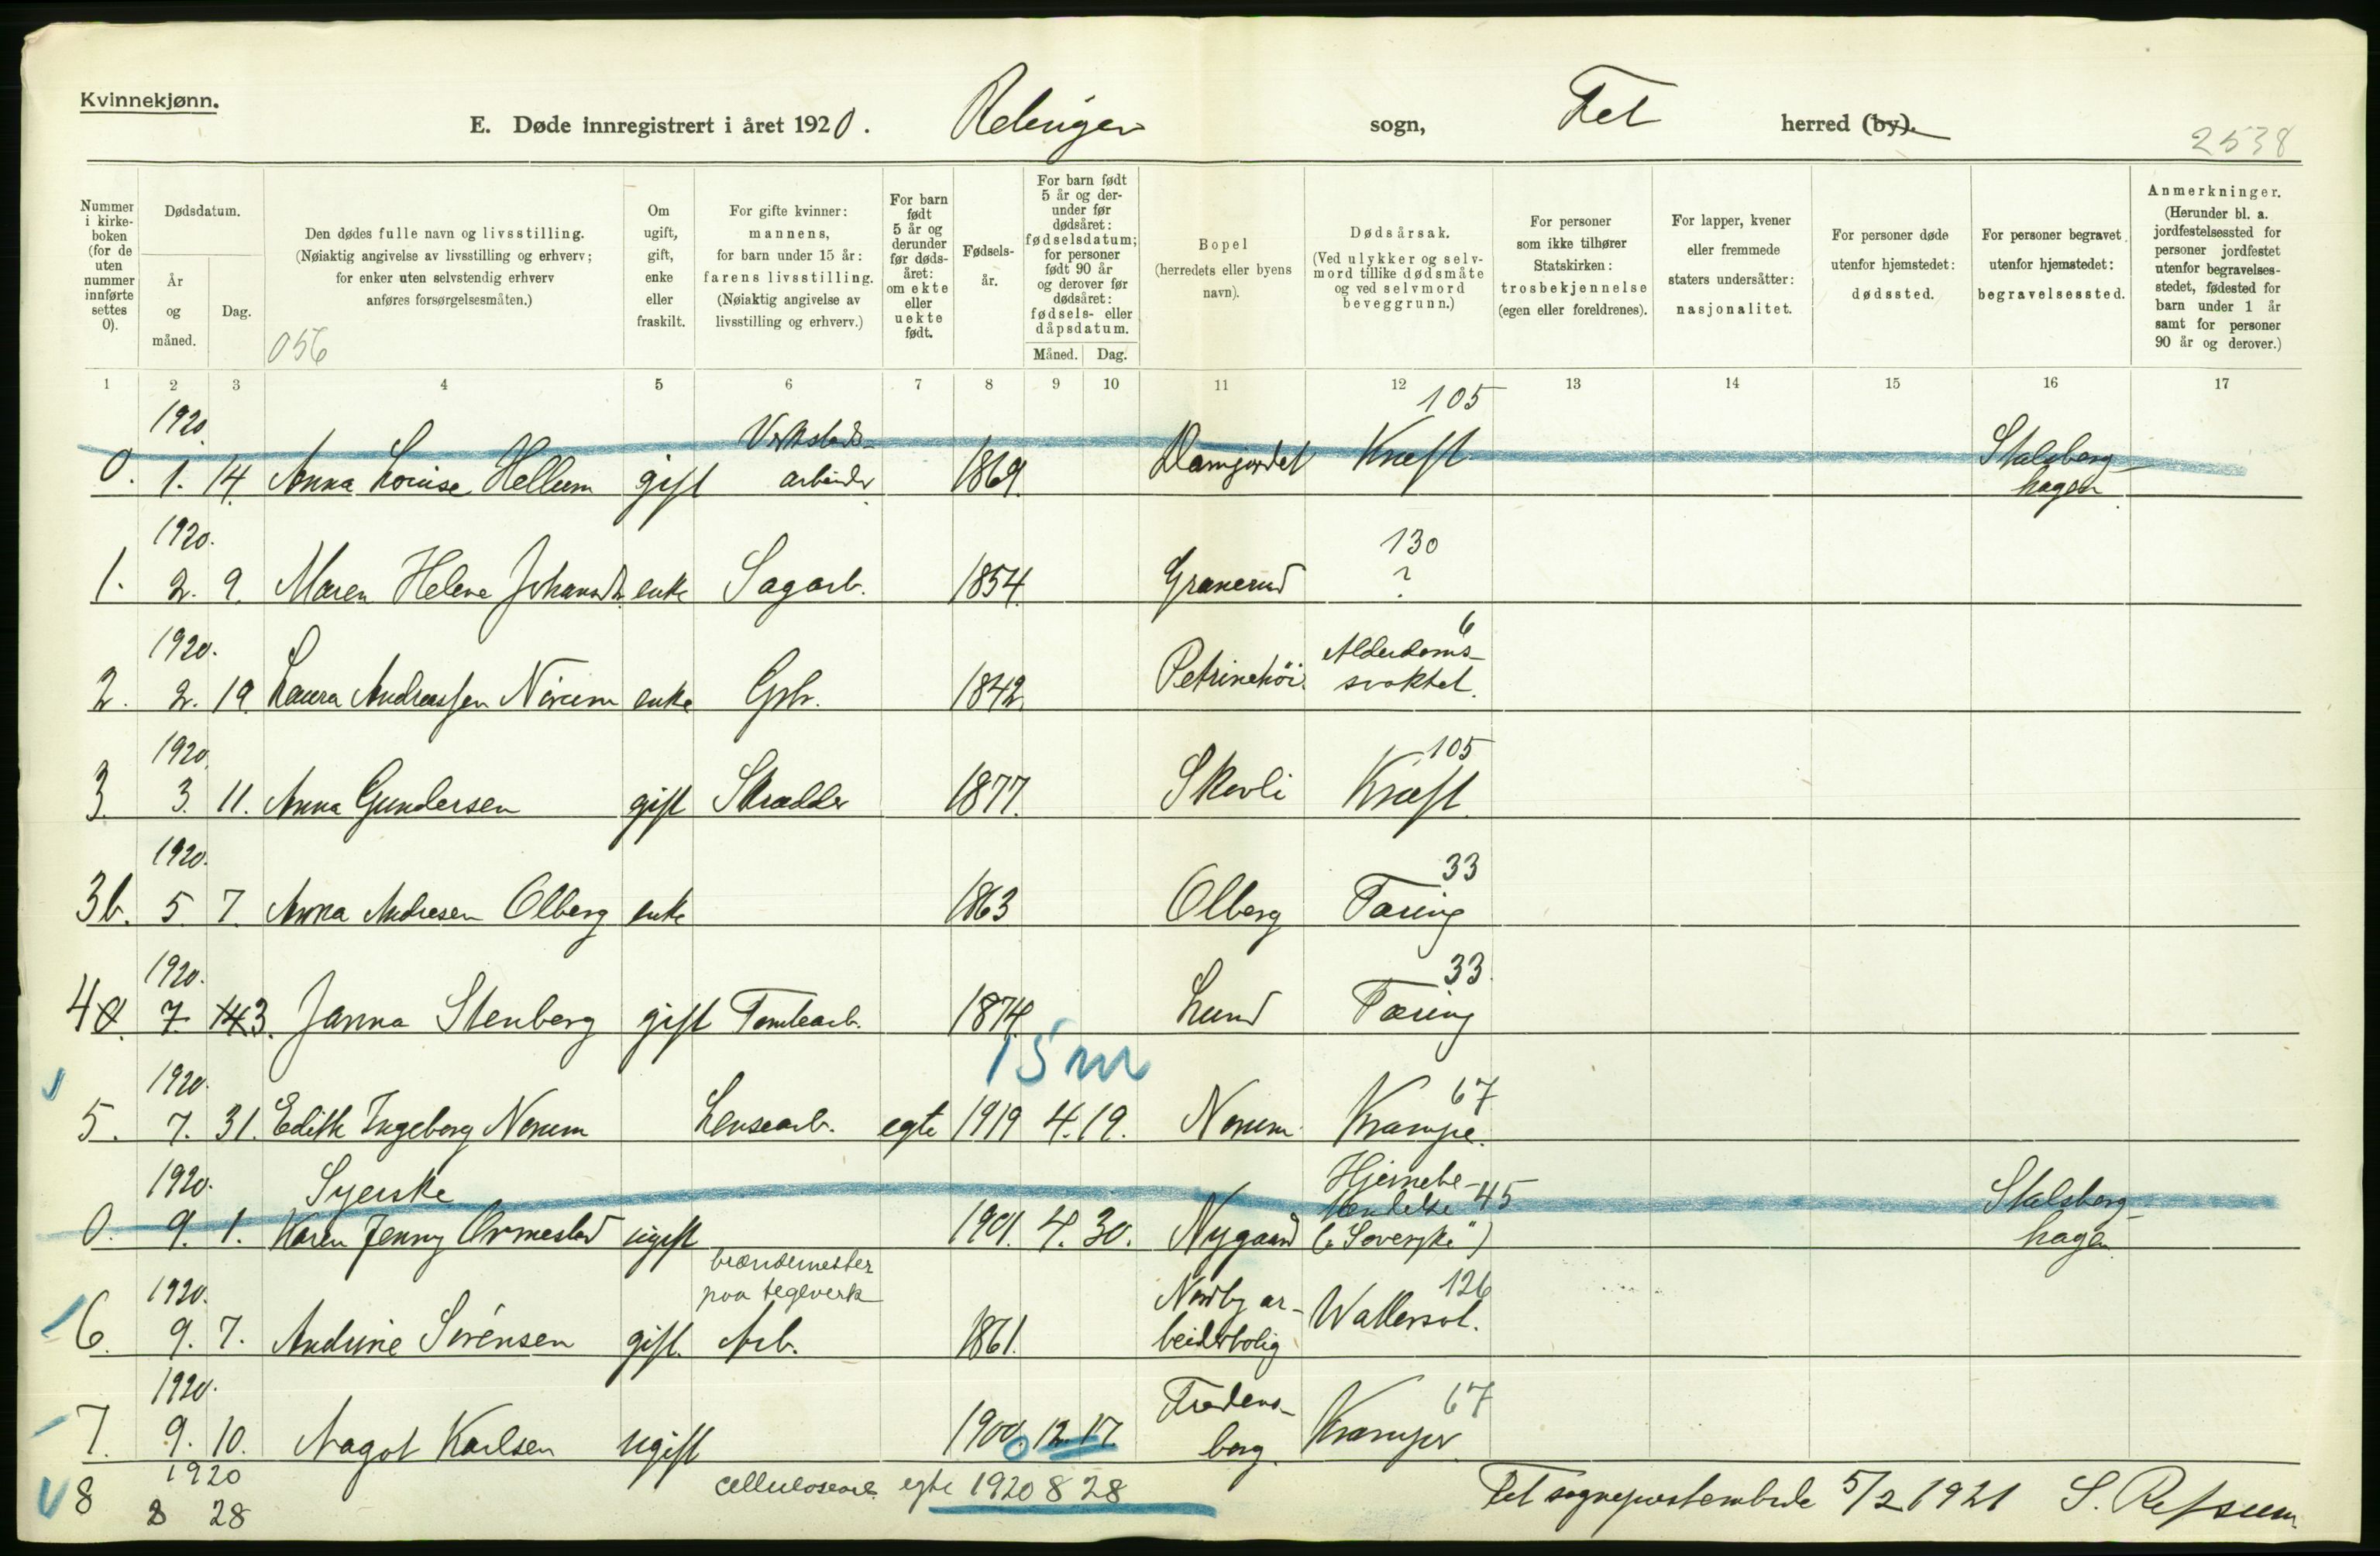 Kvinnekjønn.
E. Døde innregistrert i året 1920. Relingen sogn, Fet herred (by).
2538
Nummer i kirkeboken (for de uten nummer innførte settes 0).
Dødsdatum.
År og måned.
Dag.
Den dødes fulle navn og livsstilling. (Nøiaktig angivelse av livsstilling og erhverv; for enker uten selvstendig erhverv anføres forsørgelsesmåten.)
056
Om ugift, gift, enke eller fraskilt.
For gifte kvinner: mannens, for barn under 15 år: farens livsstilling. (Nøiaktig angivelse av livsstilling og erhverv.)
For barn født 5 år og derunder før dødsåret: om ekte eller uekte født.
Fødselsår.
For barn født 5 år og derunder før dødsåret: fødselsdatum; for personer født 90 år og derover før dødsåret: fødsels- eller dåpsdatum.
Måned. Dag.
Bopel (herredets eller byens navn).
Dødsårsak. (Ved ulykker og selvmord tillike dødsmåte og ved selvmord beveggrunn.)
For personer som ikke tilhører Statskirken: trosbekjennelse (egen eller foreldrenes).
For lapper, kvener eller fremmede staters undersåtter: nasjonalitet.
For personer døde utenfor hjemstedet: dødssted.
For personer begravet utenfor hjemstedet: begravelsessted.
Anmerkninger. (Herunder bl. a. jordfestelsessted for personer jordfestet utenfor begravelsesstedet, fødested for barn under 1 år samt for personer 90 år og derover.)
1 2 3 4 5 6 7 8 9 10 11 12 13 14 15 16 17
1920. Verksteds- 105
0. 1. 14. Anna Louise Hellum gift arbeider 1869. Damgordet Kræft Stalsberg-
hagen
1920. 130
1. 2. 9. Maren Helene enke Sagarb. 1854. Granerud ?
1920. 6
2. 2. 19. Laura Andreassen Nörum enke Gbr. 1842. Petrinehöi. Alderdoms-
svakhet.
1920. 105
3. 3. 11. Anna Gundersen gift Skrædder 1877. Skovli Kræft.
1920. 33
3b. 5 7. Anna Andresen Olberg enke 1863 Olberg Tæring
1920. 33.
40. 7. 14 3. Janna Stenberg gift Tomtearb. 1874. Lund Tæring
15 m
1920. 67
5. 7. 31. Edith Ingeborg Norum Lensearb. egte 1919 4. 19. Norum Krampe.
1920. Syerske Hjernebe-
tændelse 45
0. 9. 1. Karen Jenny Ormestad ugift 1901. 4. 30. Nygaard ("Soversyke") Stalsberg-
hagen
brændemester
paa teglverk
1920. 126
6. 9. 7. Andrine Sörensen gift. Arb. 1861. Nordby ar-
beiderbolig Wattersot.
1920. 67
7. 9. 10. Aagot Karlsen ugift 1900 12. 17. Fredens-
borg. Kramper
1920
8 8 28 cellulosearb. egte 1920 8 28
Fet sogneprestembede 5/2 1921 S. Refsum